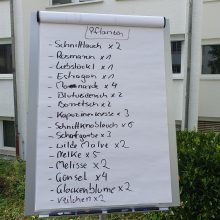 Pflanzen
- Schnittlauch x 2
- Rosmarin x 1
- Liebstöckl x 1
- Estragon x 1
- x 4
- Blutweiderich x 2
- Baretsch x 2
- Kapuzinerkresse x 3
- Schnittknoblauch x 6
- Schafgarbe x 3
- wilde Malve x 2
- Nelke x 5
- Melisse x 2
- Günsel x 4
- Glockenblume x 2
- Veilchen x 2